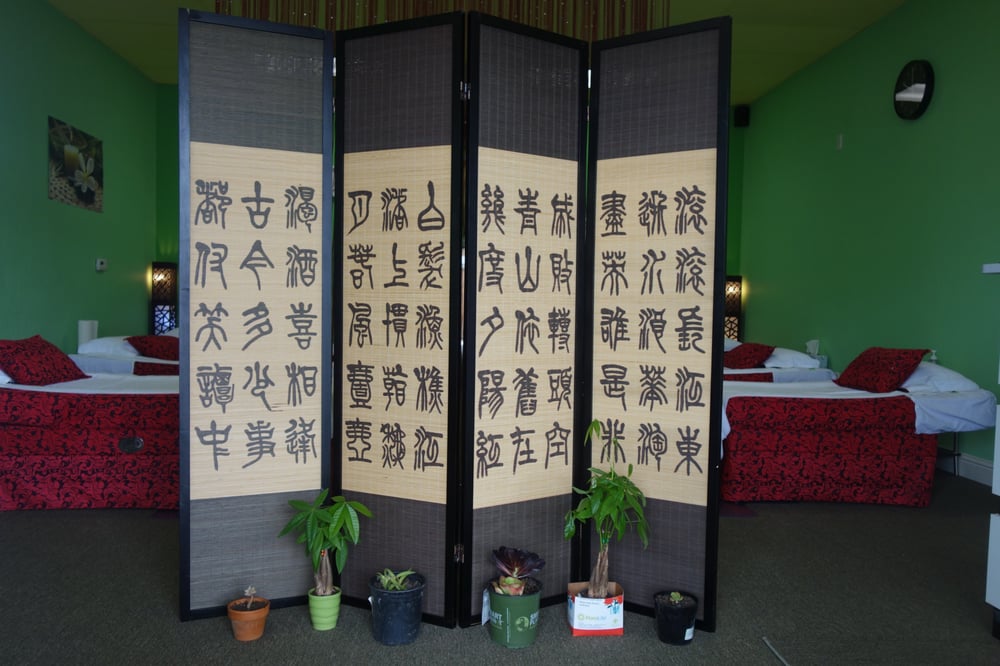 滾滾長江東
逝水浪華淘
盡英雄是非
成敗轉頭空
青山依舊在
幾度夕陽紅
白髮漁樵江
渚上慣看秋
月春風壹壺
濁酒喜相逢
古今多少事
都付笑談中